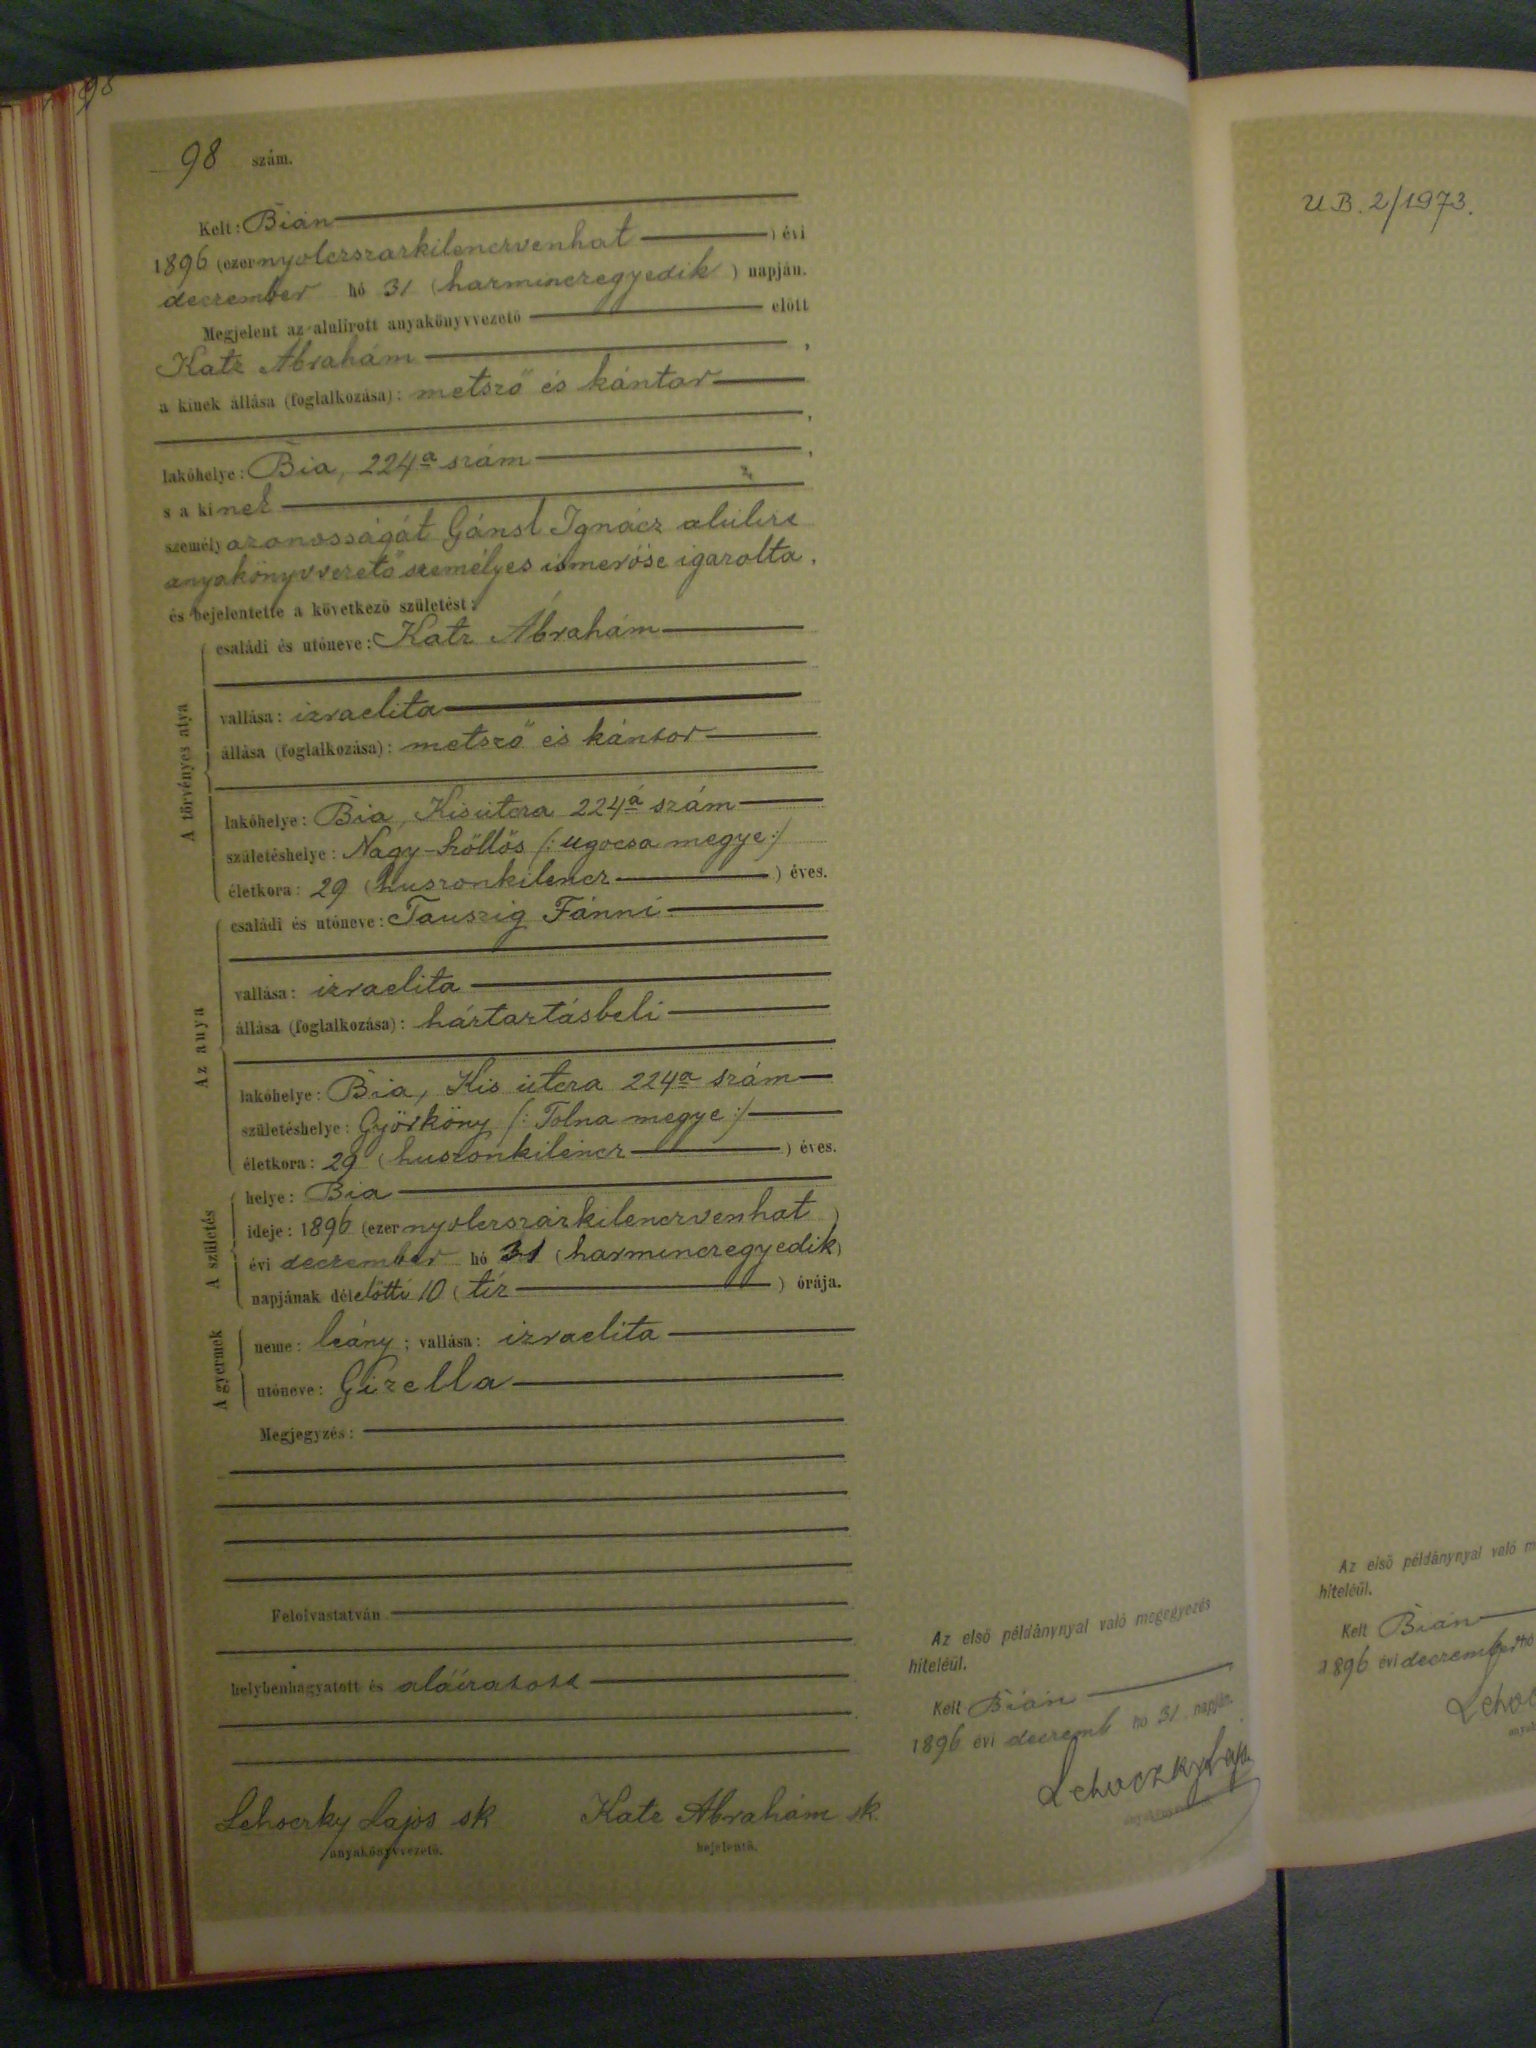 98
98 szám.
Kelt: Bián
1896 (ezernyolczszázkilenczvenhat) évi
deczember hó 31 (harminczegyedik) napján.
Megjelent az alulírott anyakönyvvezető előtt
Katz Ábrahám,
a kinek állása (foglalkozása): metsző és kántor,
lakóhelye: Bia, 224a szám,
s a kinek
személyazonosságát Gánsl Ignácz
anyakönyvvezető személyes ismerőse igazolta.
és bejelentette a következő születést:
A törvényes atya
családi és utóneve: Katz Ábrahám
vallása: izraelita
állása (foglalkozása): metsző és kántor
lakóhelye: Bia, Kisutcza 224á szám
születéshelye: Nagy-Szöllős (: Ugocsa megye :)
életkora: 29 (huszonkilencz) éves.
Az anya
családi és utóneve: Tauszig Fánni
vallása: izraelita
állása (foglalkozása): háztartásbeli
lakóhelye: Bia, Kis utcza 224a szám
születéshelye: Györköny (: Tolna megye :)
életkora: 29 (huszonkilencz) éves.
A születés
helye: Bia
ideje: 1896 (ezernyolczszázkilenczvenhat)
évi deczember hó 31 (harminczegyedik)
napjának délelőtti 10 (tíz) órája.
A gyermek
neme: leány; vallása: izraelita
utóneve: Gizella
Megjegyzés:
Felolvastatván
helybenhagyatott és aláíratott
Lehoczky Lajos sk
anyakönyvvezető.
Katz Ábrahám sk.
bejelentő.
Az első példánynyal való megegyezés
hiteléül.
Kelt Bián
1896 évi deczemb hó 31 napján.
Lehoczky Lajos
anyakönyvvezető.
U B. 2/1973.
Az első példánynyal való m
hiteléül.
Kelt Bián
1896 évi deczember hó
Lehoc